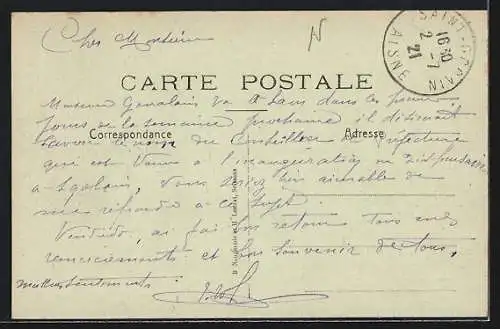 Cher Monsieur
N
SAINT-GOBAIN
16 30
2 -7
21
AISNE
CARTE POSTALE
Monsieur va a Laon dans les
jours de la semaine prochaine il désirerait
Correspondance
Adresse
savoir le nom du Conseiller de Préfecture
qui est venu à l'inauguration du
a St gobain, Vous seriez bien aimable de
me répondre a ce sujet.
Vendredi, ai fait bon retour Tous mes
remerciements et bon souvenir de tous,
meilleurs sentiments